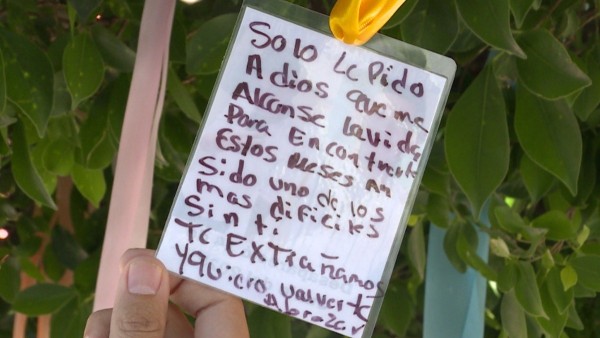 Solo Le Pido
A dios que me
Alcanse la vida
Para Encontrarte
Estos meses an
Sido uno de los
mas dificiles
Sin ti
TE EXTrañamos
y quiero ya verte
Abrazar